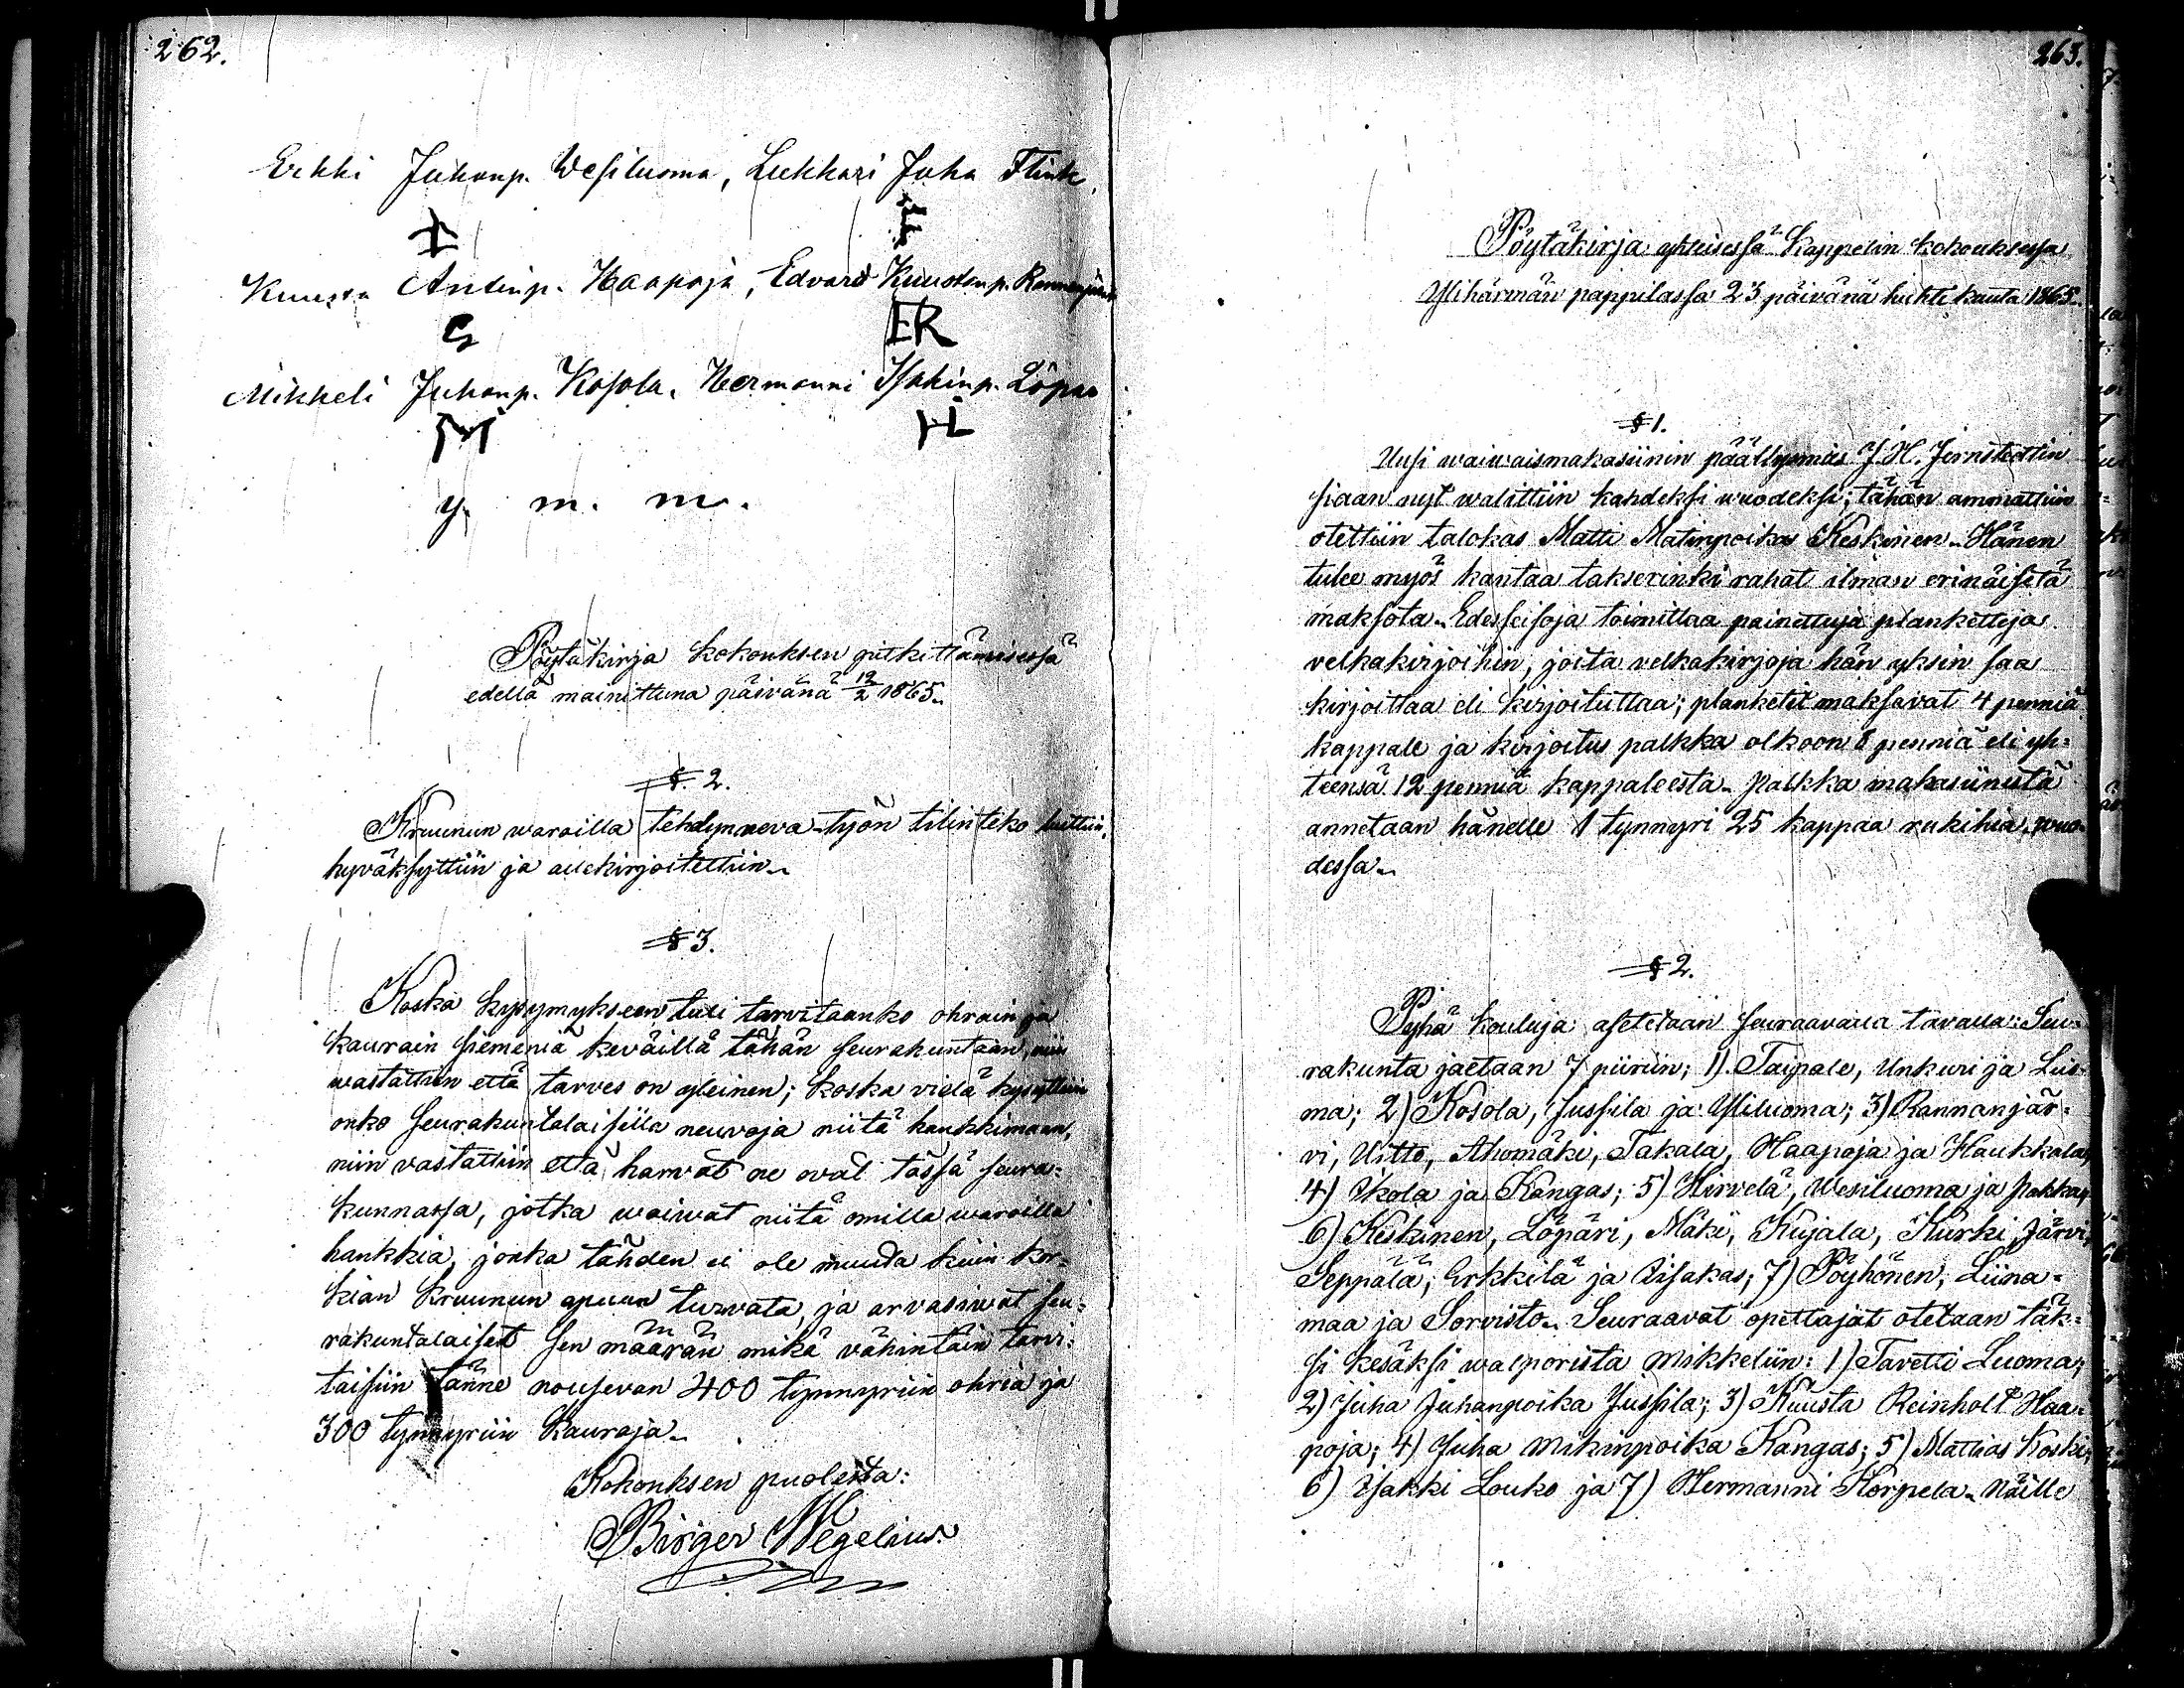 262.
Erkki Juhanp. Wesiluoma, Lukkari Juha Flink
Kuusta Antinp. Haapoja, Edvard Kuustanp. Rannanjärvi
ER
Mikkeli Juhanp. Kosola, Hermanni Isakinp. Löpari
M HL
y. m. m.
Pöytäkirja kokouksen pitkittämisessä
edellä mainittuna päivänä 12/2 1865.
§. 2.
Kruunun waroilla tehdyn neva-työn tilinteko luettiin,
hyväksyttiin ja allekirjoitettiin.
§ 3.
Koska kysymykseen tuli tarvitaanko ohrain ja
kaurain siemeniä keväillä tähän seurakuntaan, niin
wastattiin että tarves on yleinen; koska vielä kysyttiin
onko seurakuntalaisilla neuvoja niitä hankkimaan,
niin vastattiin että harwat ne owat tässä seura-
kunnassa, jotka woiwat niitä omilla waroilla
hankkia, jonka tähden ei ole muuta kuin kor-
kian kruunun apuun turwata, ja arvasiwat seu-
rakuntalaiset sen määrän mikä vähintäin tarvi-
taisiin tänne nousevan 400 tynnyriin ohria ja
300 tynnyriin kauroja.
Kokouksen puolesta:
Birger Wegelius.
263.
Pöytäkirja yhteisessä Kappelin kokouksessa
Ylihärmän pappilassa 23 päivänä huhti kuuta 1865.
§ 1.
Uusi waiwaismakasiinin päällysmies J. H. Jernstedtin
siaan nyt walittiin kahdeksi wuodeksi; tähän ammattiin
otettiin talokas Matti Matinpoika Keskinen. Hänen
tulee myös kantaa takserinki rahat ilman erinäisetä
maksota. Edesseisoja toimittaa painettuja planketteja
velkakirjoihin, joita velkakirjoja hän yksin saa
kirjoittaa eli kirjoituttaa; planketit maksavat 4 penniä
kappale ja kirjoitus palkka olkoon 8 penniä eli yh-
teensä 12 penniä kappaleesta. Palkka makasiinista
annetaan hänelle 1 tynnyri 25 kappaa rukihia wuo-
dessa.
§ 2.
Pyhä kouluja asetetaan seuraavalla tavalla: Seu-
rakunta jaetaan 7 piiriin; 1). Taipale, Unkuri ja Luo-
ma; 2) Kosola, Jussila ja Yliluoma; 3) Rannanjär-
vi, Uitto, Ahomäki, Takala, Haapoja ja Haukkala,
4) Ikola ja Kangas; 5) Hirvelä, Wesiluoma ja Pakka,
6) Keskinen, Löpäri, Mäki, Kujala, Kurki, Järvi,
Seppälä, Erkkilä ja Iisakas; 7) Pöyhönen, Liina-
maa ja Sorvisto. Seuraavat opettajat otetaan täk-
si kesäksi walporista Mikkeliin: 1) Tavetti Luoma;
2) Juha Juhanpoika Jussila; 3) Kuusta Reinholt Haa-
poja; 4) Juha Mikinpoika Kangas; 5) Mattias Koski,
6) Isakki Louko ja 7) Hermanni Korpela. Näille